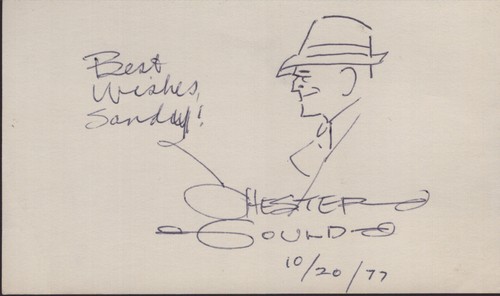 Best
Wishes,
Sandy!
CHESTER
GOULD
10/20/77